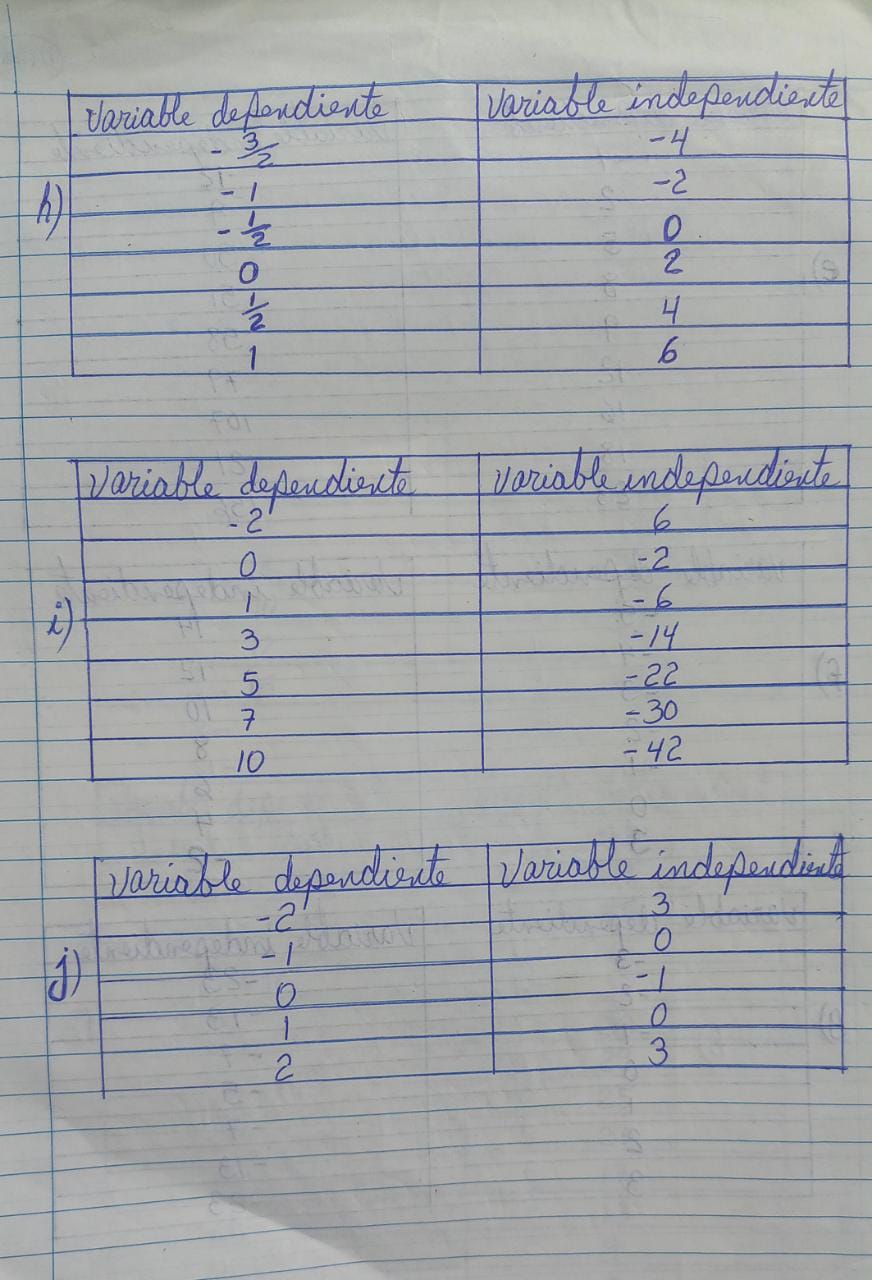 variable dependiente variable independiente
- 3/2 -4
-1 -2
h)
- 1/2 0
0 2
1/2 4
1 6
variable dependiente variable independiente
-2 6
0 -2
1 -6
i)
3 -14
5 -22
7 -30
10 -42
variable dependiente variable independiente
-2 3
-1 0
j)
0 -1
1 0
2 3